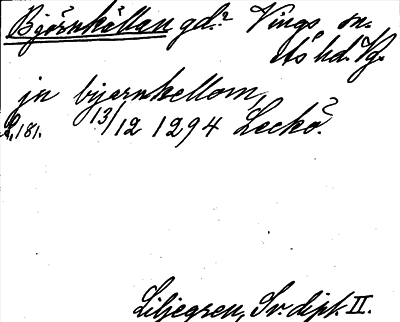 Björnkällan gd.? Vings sn.
Ås hd. Vg.
in biernkellom,
s. 181. 13/12 1294 Leckö?
Liljegren, Sv. dipl. II.